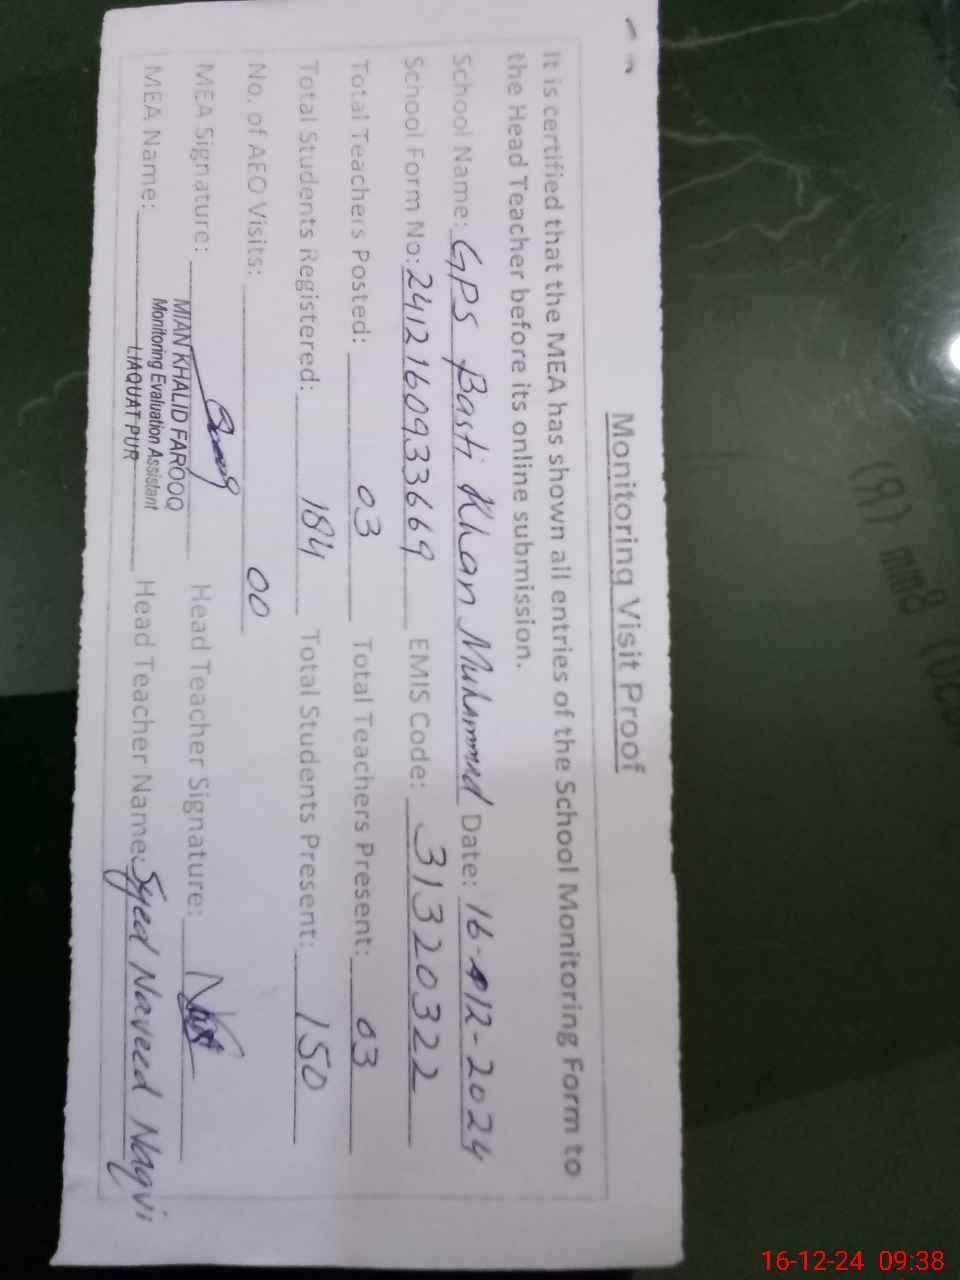 Monitoring Visit Proof
It is certified that the MEA has shown all entries of the School Monitoring Form to
the Head Teacher before its online submission.
School Name: GPS Basti Khan Muhammad Date: 16-12-2024
School Form No: 2412160933669 EMIS Code: 31320322
Total Teachers Posted: 03 Total Teachers Present: 03
Total Students Registered: 184 Total Students Present: 150
No. of AEO Visits: 00
MEA Signature: Head Teacher Signature:
MIAN KHALID FAROOQ
Monitoring Evaluation Assistant
LIAQUAT PUR
MEA Name: Head Teacher Name: Syed Naveed Naqvi
(9) mm8
16-12-24 09:38